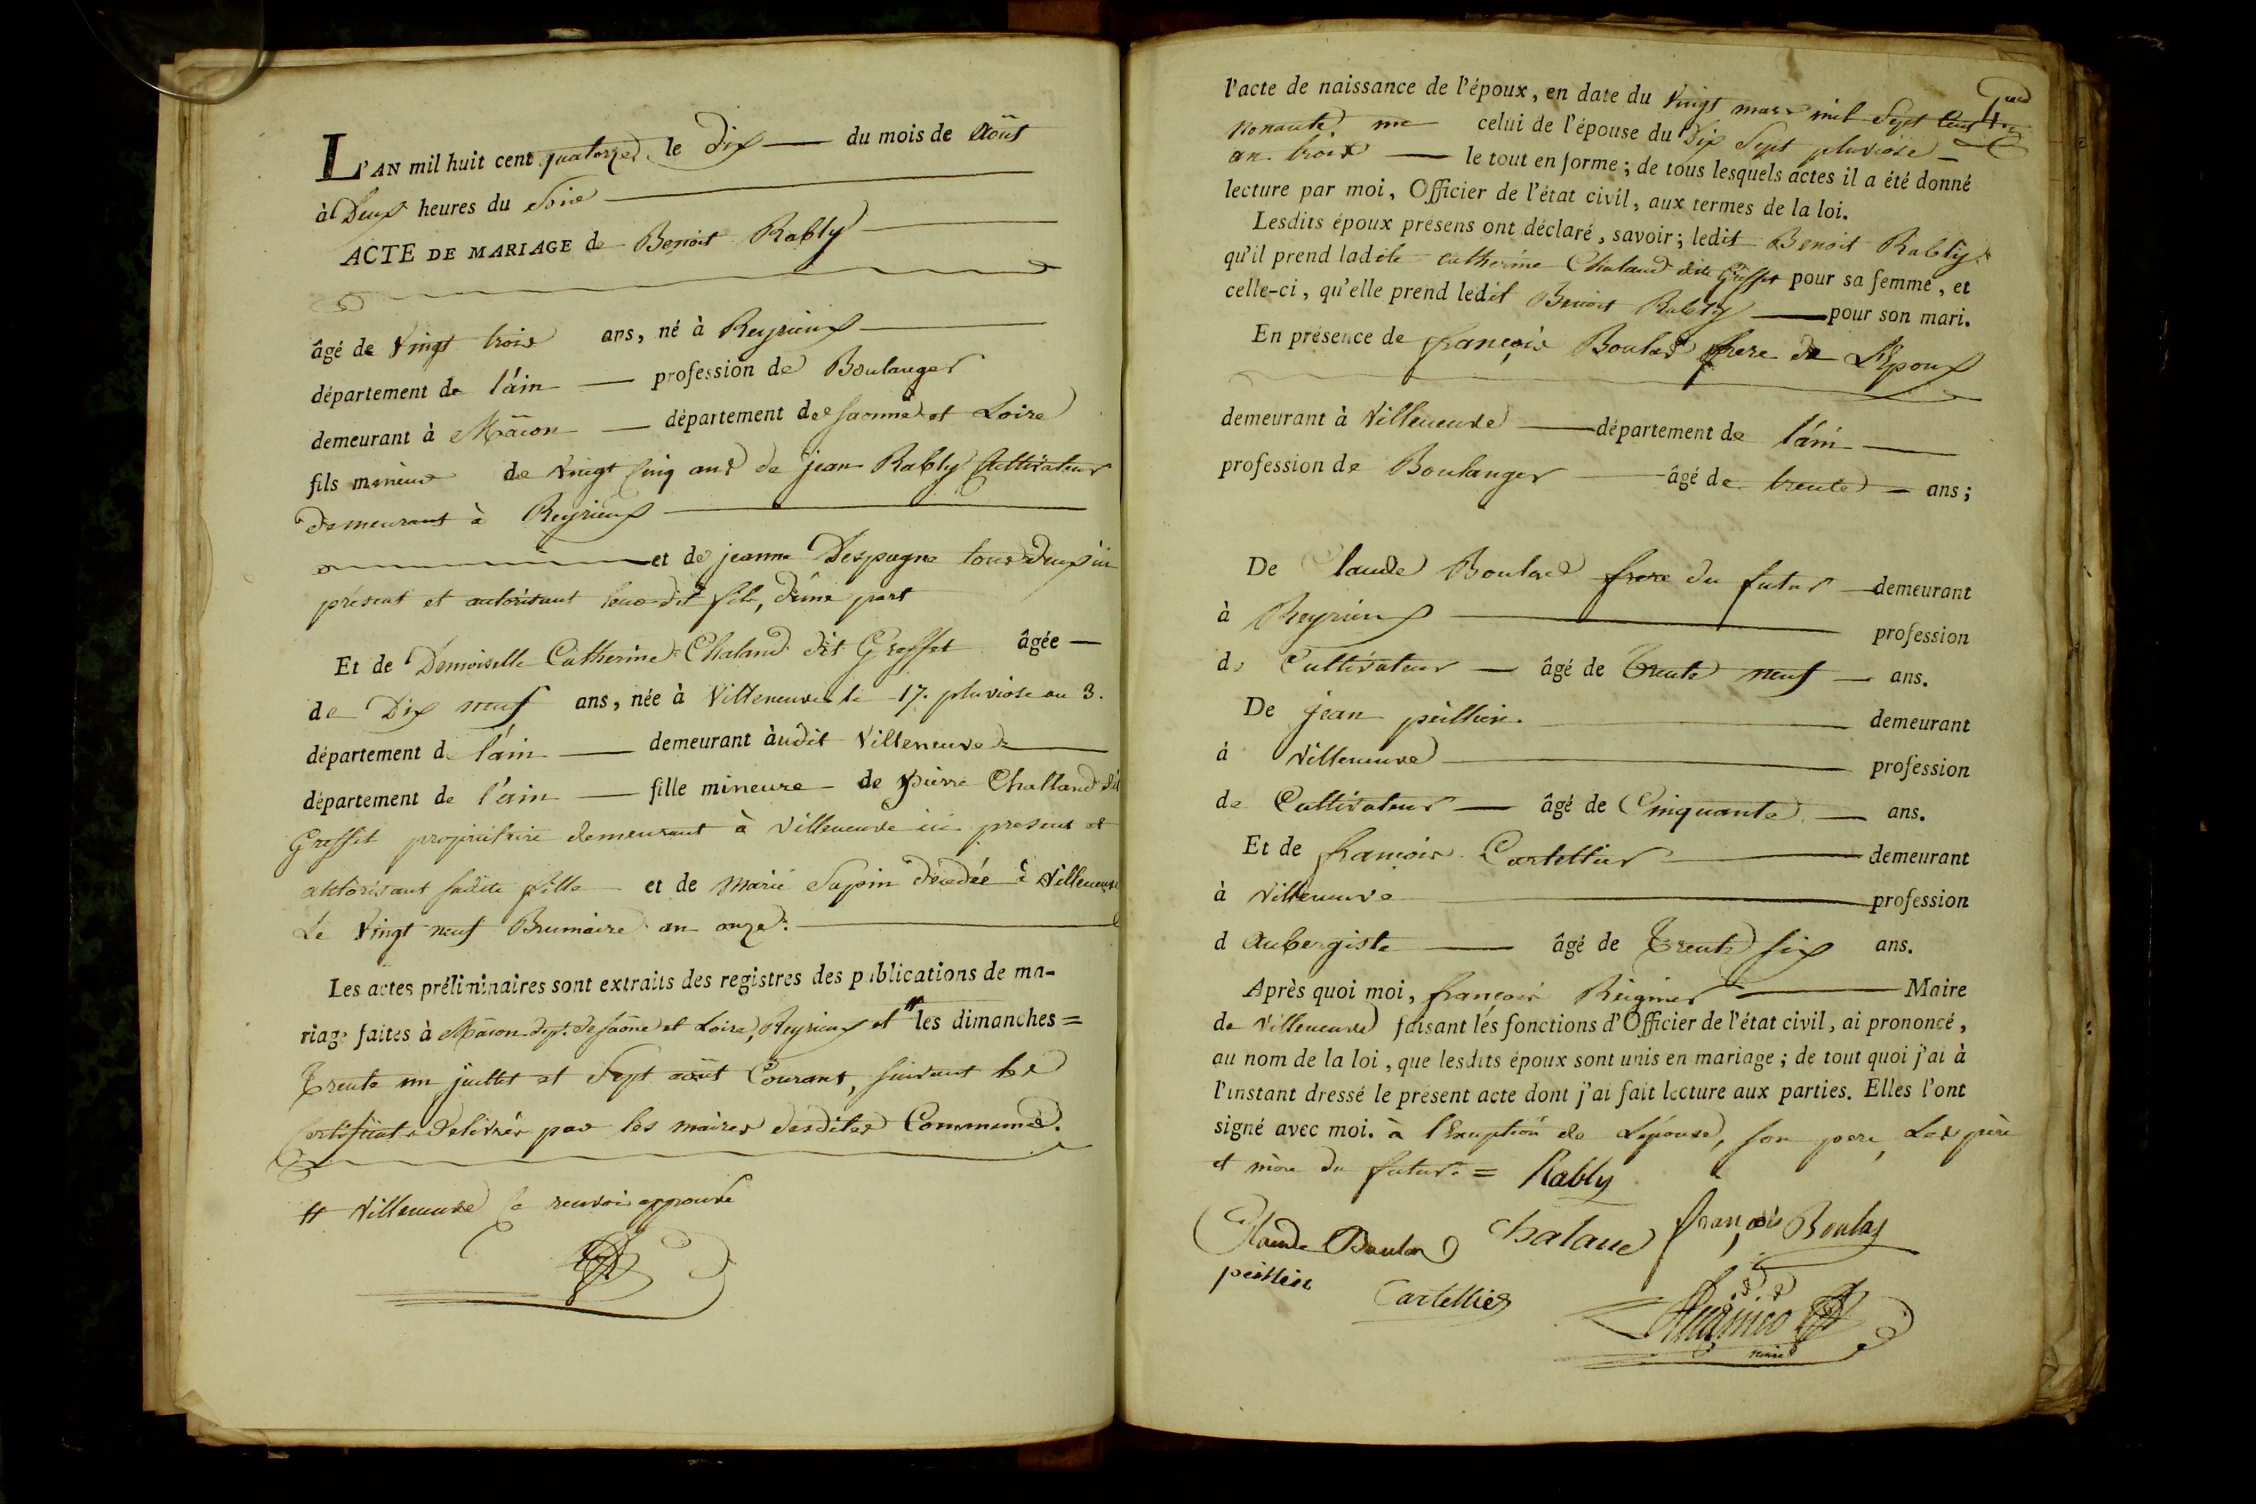 L'AN mil huit cent quatorze, le Dix du mois de Août
à Deux heures du Soir
ACTE DE MARIAGE de Benoit Rably
âgé de Vingt trois ans, né à Reyrieux
département de l'ain profession de Boulanger
demeurant à Mâcon département de Saonne et Loire
fils mineur de Vingt Cinq ans de jean Rably Cultivateur
demeurant à Reyrieux
et de jeanne Despagne tous Deux ici
présent et autorisant leur dit fils, d'une part
Et de Demoiselle Catherine Chaland dit Greffet âgée
de Dix neuf ans, née à Villeneuve le 17. pluviose an 3.
département de l'ain demeurant àudit Villeneuve
département de l'ain fille mineure de pierre Challand dit
Greffet propriétaire demeurant à Villeneuve ici present et
autorisant sadite fille et de Marie Sapin décédée à Villeneuve
Le Vingt neuf Brumaire an onze.
Les actes préliminaires sont extraits des registres des publications de ma-
riage faites à Mâcon dept. de Saône et Loire, Reyrieux et # les dimanches =
Trente un juillet et Sept août Courant, suivant les
Certificats Délivrés par les maires desdites Communes.
# Villeneuve le renvoi approuvé
l'acte de naissance de l'époux, en date du Vingt mars mil Sept Cent quatre
nonante un celui de l'épouse du Dix Sept pluviose
an trois le tout en forme ; de tous lesquels actes il a été donné
lecture par moi, Officier de l'état civil, aux termes de la loi.
Lesdits époux présens ont déclaré, savoir ; ledit Benoit Rably
qu'il prend ladite catherine Chaland dite Greffet pour sa femme, et
celle-ci, qu'elle prend ledit Benoit Rably pour son mari.
En présence de françois Boulas frere de L'Epoux
demeurant à Villeneuve département de l'ain
profession de Boulanger âgé de trente ans ;
De Claude Boulas frere du futur demeurant
à Reyrieux profession
de Cultivateur âgé de Trente neuf ans.
De jean peillien demeurant
à Villeneuve profession
de Cultivateur âgé de Cinquante ans.
Et de francois Cartellier demeurant
à Villeneuve profession
d aubergiste âgé de Trente six ans.
Après quoi moi, françois Reignier Maire
de Villeneuve faisant les fonctions d'Officier de l'état civil, ai prononcé,
au nom de la loi, que lesdits époux sont unis en mariage ; de tout quoi j'ai à
l'instant dressé le présent acte dont j'ai fait lecture aux parties. Elles l'ont
signé avec moi. à l'Exception de L'epouse, son pere, Les père
et mère du futur. = Rably
Claude Boulas Chaland françois Boulas
peillien
Cartellier
maire